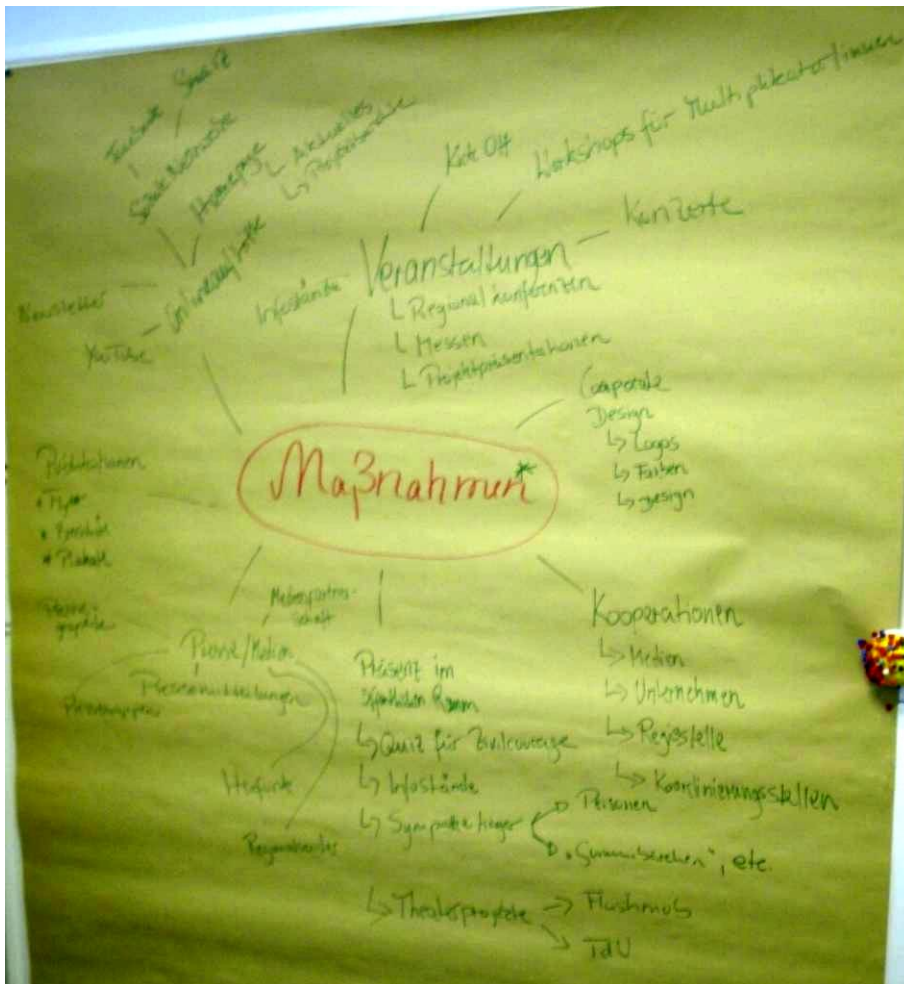 Facebook
Soziale Netzwerke
Homepage
↳ Aktuelles
Newsletter
YouTube
Infostände
Veranstaltungen
Kick Off
Workshops für Multiplikator/innen
Konzerte
↳ Regionalkonferenzen
↳ Messen
↳ Projektpräsentationen
Corporate
Design
↳ Logos
↳ Farben
↳ Design
Maßnahmen*
Publikationen
• Flyer
• Broschüre
• Plakate
Medienpartner-
schaft
Presse/Medien
Pressemitteilungen
Pressemappen
Hörfunk
Präsenz im
öffentlichen Raum
↳ Quiz für Zivilcourage
↳ Infostände
↳ Sympathieträger
Personen
"Gummibärchen", etc.
↳ Theaterprojekte → Flashmob
TdU
Kooperationen
↳ Medien
↳ Unternehmen
↳ Regiestelle
↳ Koordinierungsstellen